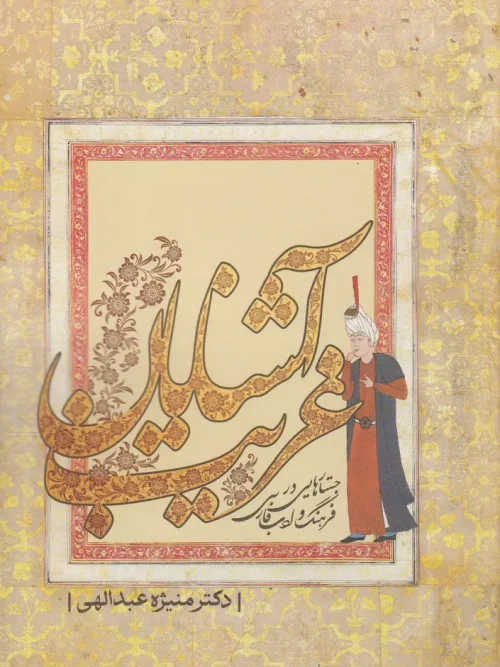 آشنایان
غریب
جستارهایی در
فرهنگ و ادب فارسی
| دکتر منیژه عبدالهی |